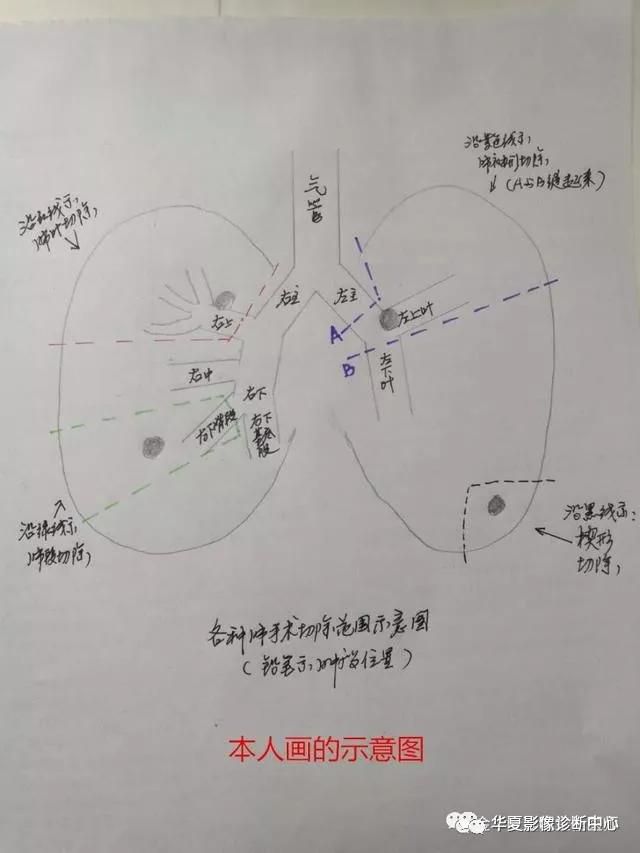 气管
沿蓝色线示:
肺袖切除,
(A与B缝起来)
沿红线示,
肺叶切除,
右主
左主
右上
左上叶
A
B
右中
左下叶
右下
右下背段
右下基底段
沿绿线示,
肺段切除,
沿黑线示:
楔形
切除,
各种肺手术切除范围示意图
(铅笔示,肿瘤位置)
本人画的示意图
金华夏影像诊断中心